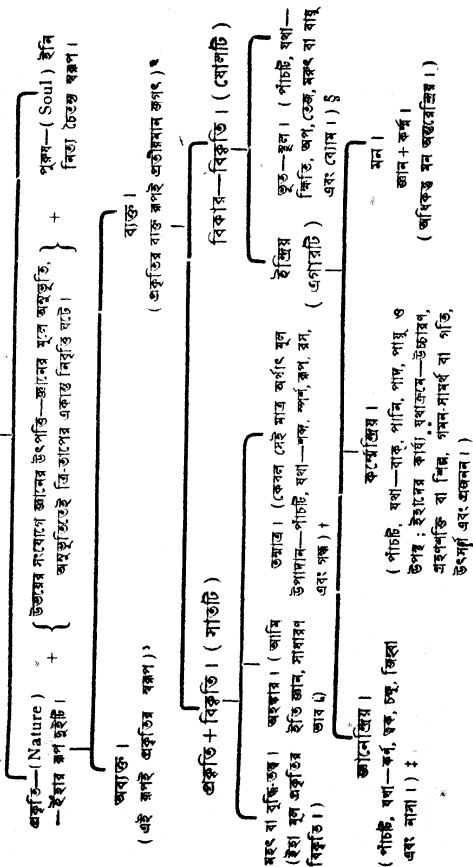 প্রকৃতি—(Nature)
—ইঁহার রূপ দুইটি।
+
উভয়ের সংযোগে জ্ঞানের উৎপত্তি—জ্ঞানের মূলে অনুভূতি,
অনুভূতিতেই ত্রি-তাপের একান্ত নিবৃত্তি ঘটে।
+
পুরুষ—(Soul) ইনি
নিত্য চৈতন্য স্বরূপ।
অব্যক্ত।
(এই রূপই প্রকৃতির স্বরূপ)¹
ব্যক্ত।
(প্রকৃতির ব্যক্ত রূপই প্রতীয়মান জগৎ)²
প্রকৃতি+বিকৃতি। (সাতটি)
বিকার—বিকৃতি। (ষোলটি)
মহৎ বা বুদ্ধি-তত্ত্ব।
(ইহা মূল প্রকৃতির
বিকৃতি।)
অহঙ্কার। (আমি
ইতি জ্ঞান, সাধারণ
ভাব।)
তন্মাত্র। (কেবল সেই মাত্র অর্থাৎ মূল
উপাদান—পাঁচটি, যথা—শব্দ, স্পর্শ, রূপ, রস,
এবং গন্ধ) †
ইন্দ্রিয়
(এগারটি)
ভূত—স্থূল। (পাঁচটি, যথা—
ক্ষিতি, অপ্, তেজ, মরুৎ বা বায়ু
এবং ব্যোম।) §
জ্ঞানেন্দ্রিয়।
(পাঁচটি, যথা—কর্ণ, ত্বক, চক্ষু, জিহ্বা
এবং নাসা।) ‡
কর্ম্মেন্দ্রিয়।
(পাঁচটি, যথা—বাক, পানি, পাদ, পায়ু ও
উপস্থ; ইহাদের কার্য্য যথাক্রমে—উচ্চারণ,
গ্রহণশক্তি বা শিল্প, গমন-সামর্থ বা গতি,
উৎসর্গ এবং প্রজনন।)
মন।
জ্ঞান+কর্ম্ম।
(অধিকন্তু মন অন্তরেন্দ্রিয়।)